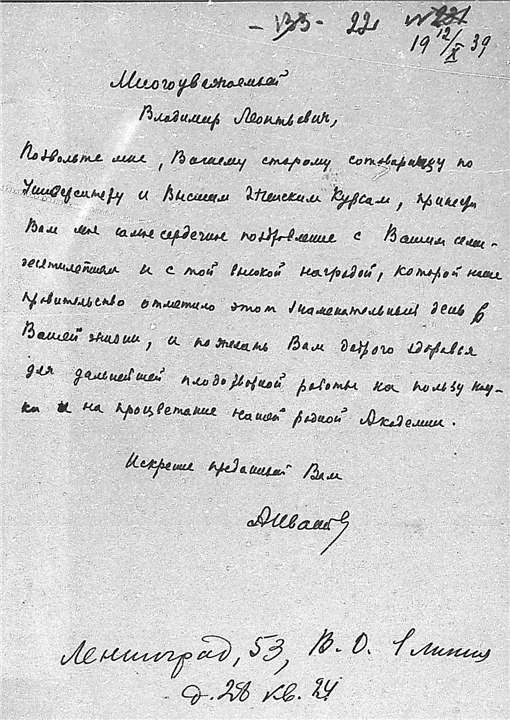 22
19 12/X 39
Многоуважаемый
Владимир Леонтьевич,
Позвольте мне, Вашему старому сотоварищу по
Университету и Высшим Женским Курсам, принести
Вам мое самое сердечное поздравление с Вашим семи-
десятилетием и с той высокой наградой, которой наше
правительство отметило этот знаменательный день в
Вашей жизни, и пожелать Вам доброго здоровья
для дальнейшей плодотворной работы на пользу нау-
ки и на процветание нашей родной Академии.
Искренне преданный Вам
АИванов
Ленинград, 53, В. О. 1 линия
д. 28 кв. 24